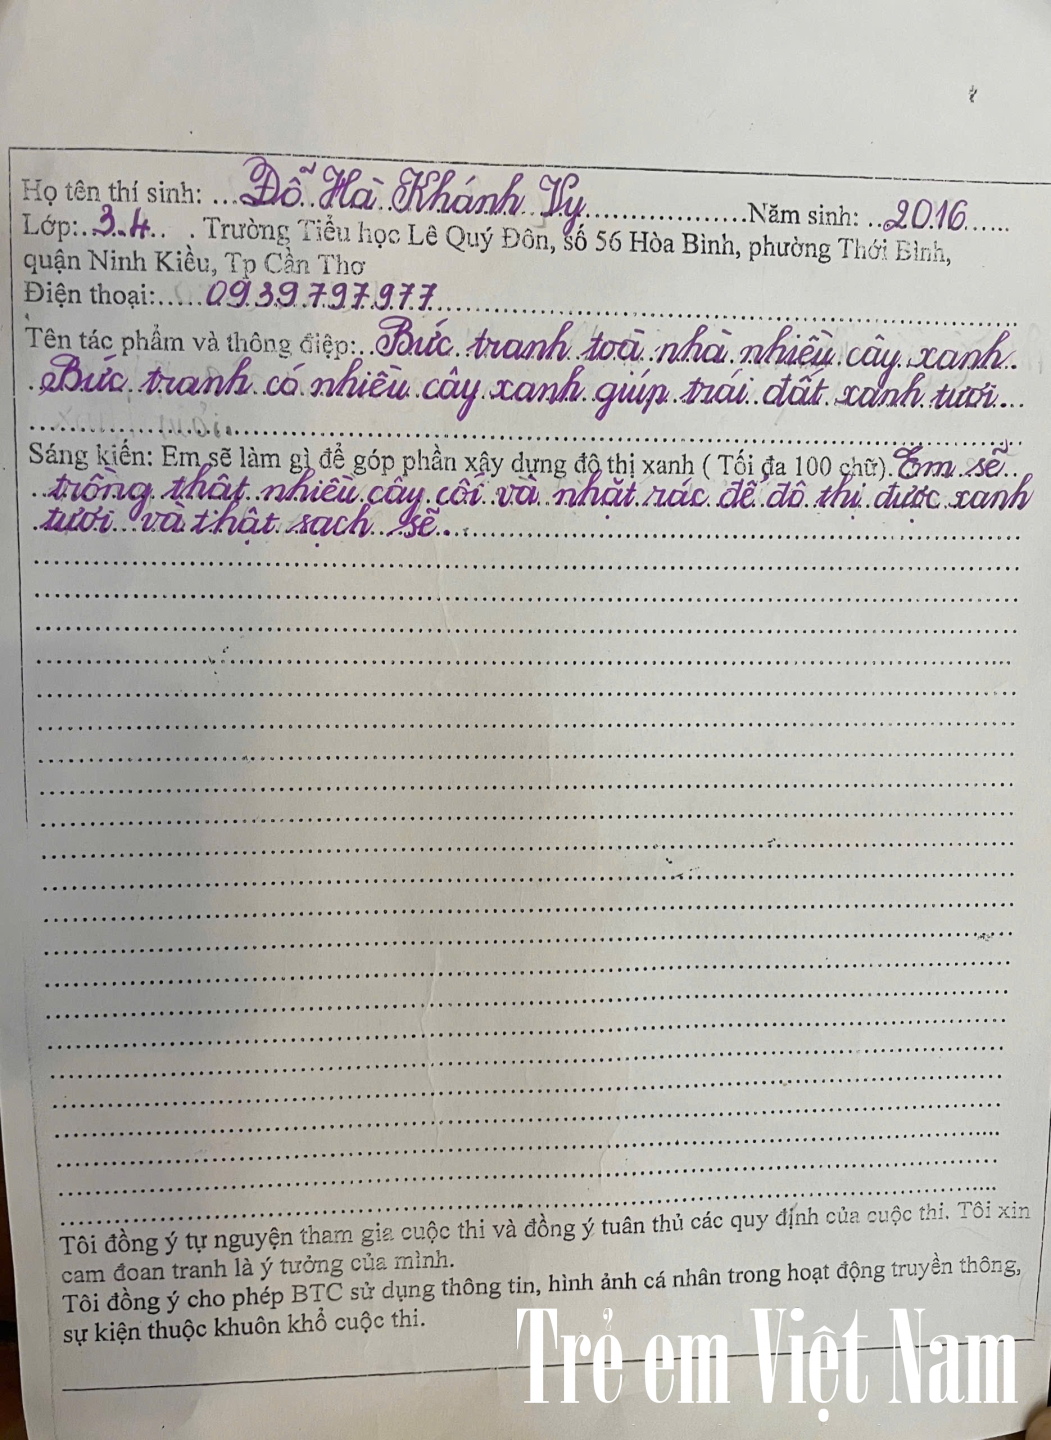 Họ tên thí sinh: ... Đỗ Hà Khánh Vy ................ Năm sinh: .. 2016 ......
Lớp: . 3.4 .. . Trường Tiểu học Lê Quý Đôn, số 56 Hòa Bình, phường Thới Bình,
quận Ninh Kiều, Tp Cần Thơ
Điện thoại: ..... 0939797977 ................
Tên tác phẩm và thông điệp: .. Bức tranh toà nhà nhiều cây xanh.
. Bức tranh có nhiều cây xanh giúp trái đất xanh tươi ...
Sáng kiến: Em sẽ làm gì để góp phần xây dựng đô thị xanh ( Tối đa 100 chữ). Em sẽ..
.. trồng thật nhiều cây cối và nhặt rác để đô thị được xanh
. tươi và thật sạch sẽ ................
Tôi đồng ý tự nguyện tham gia cuộc thi và đồng ý tuân thủ các quy định của cuộc thi. Tôi xin
cam đoan tranh là ý tưởng của mình.
Tôi đồng ý cho phép BTC sử dụng thông tin, hình ảnh cá nhân trong hoạt động truyền thông,
sự kiện thuộc khuôn khổ cuộc thi.
Trẻ em Việt Nam